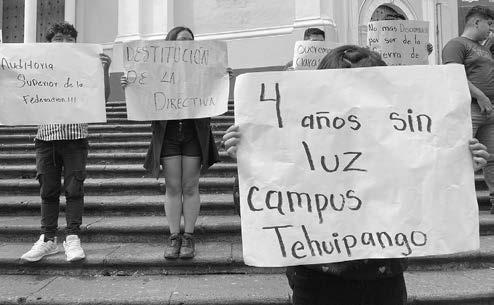 Auditoria
Superior de la
Federacion!!!
DESTITUCIÓN
DE LA
DIRECTIVA
Queremos
No más Discriminación
por ser de la
Sierra de
4 años sin
luz
campus
Tehuipango